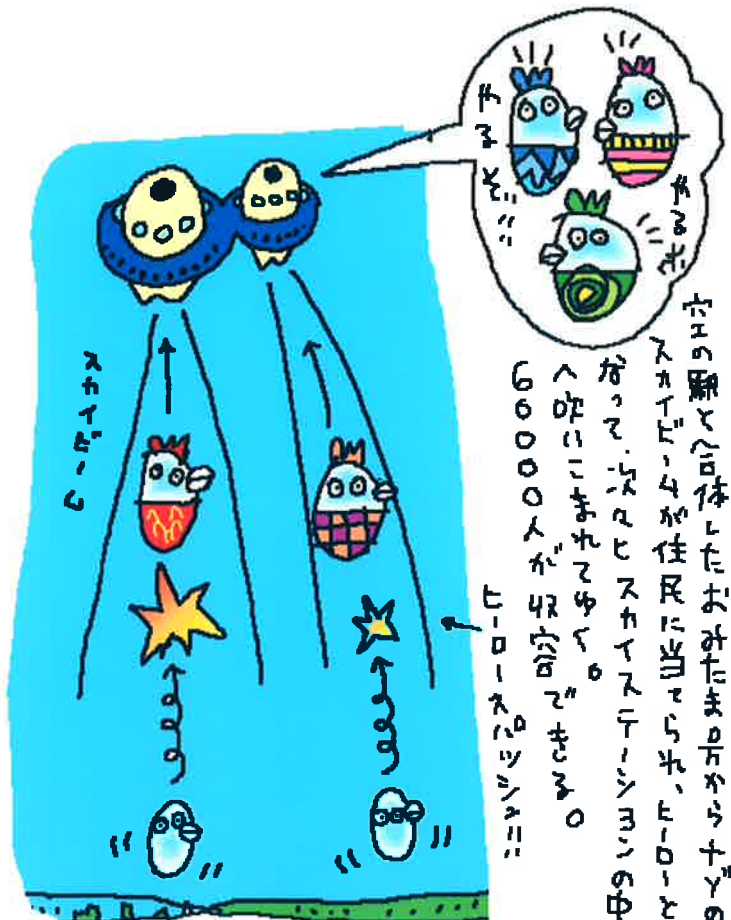 やるぞ!!!
やるぞ
空の駅と合体したおみたま百方からナゾの
スカイビームが住民に当てられ、ヒーローと
なって、次々とスカイステーションの中
へ吹いこまれてゆく。
60000人が収容できる。
ヒーロースパッシュ!!
スカイビーム